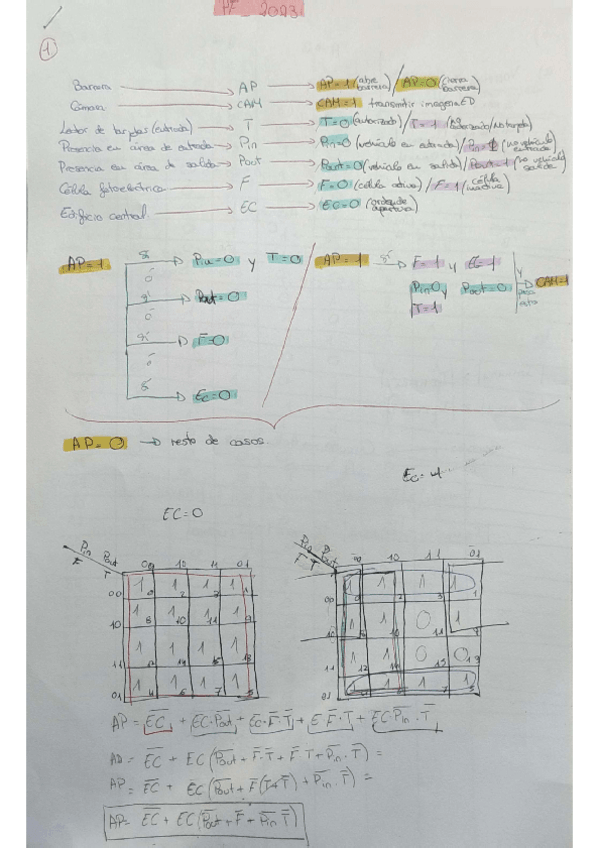 PF_2023
1
Barrera → AP → AP=1 (abre barrera) / AP=0 (cierra barrera)
Cámara → CAM → CAM=1 transmitir imagen a ED
Lector de tarjetas (entrada) → T → T=0 (autorizado) / T=1 (no autorizado/No tarjeta)
Presencia en área de entrada → Pin → Pin=0 (vehículo en entrada) / Pin=1 (no vehículo entrada)
Presencia en área de salida → Pout → Pout=0 (vehículo en salida) / Pout=1 (no vehículo salida)
Célula fotoeléctrica → F → F=0 (célula activa) / F=1 (célula inactiva)
Edificio central → EC → EC=0 (orden de apertura)
AP=1 si → Pin=0 y T=0
ó
si → Pout=0
ó
si → F=0
ó
si → EC=0
AP=1 si → F=1 y EC=1
Pin=0 y Pout=0
T=1
y
CAM=1
AP=0 → resto de casos.
EC=0
Pin Pout
F T
00 10 11 01
00 1 1 1 1
10 1 1 1 1
11 1 1 1 1
01 1 1 1 1
Pin Pout
F T
10 11 01
00 1 1 1 1
10 1 1 0 1
11 1 1 0 0
01 1 1 1 1
AP = E̅C̅ + EC·P̅out + EC·F̅·T̅ + E F̅·T + EC·P̅in·T̅
AP = E̅C̅ + EC(P̅out + F̅·T̅ + F̅ T + P̅in·T̅) =
AP = E̅C̅ + EC(P̅out + F̅(T+T̅) + P̅in·T̅) =
AP = E̅C̅ + EC(P̅out + F̅ + P̅in·T̅)